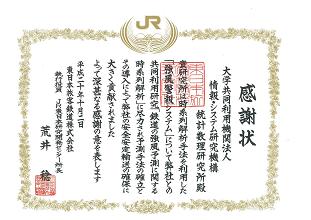 JR
感謝状
大学共同利用機関法人
情報・システム研究機構
統計数理研究所殿
貴研究所は時系列解析手法を利用した
「強風警報システム」について弊社との
共同利用研究「鉄道の強風予測に関する
時系列解析」に尽力され予測手法の確立と
その導入によって弊社の安全安定輸送の確保に
大きく貢献されました
よって深甚なる感謝の意を表します
平成二十年十月二日
東日本旅客鉄道株式会社
執行役員 JR東日本研究開発センター所長
荒井 稔